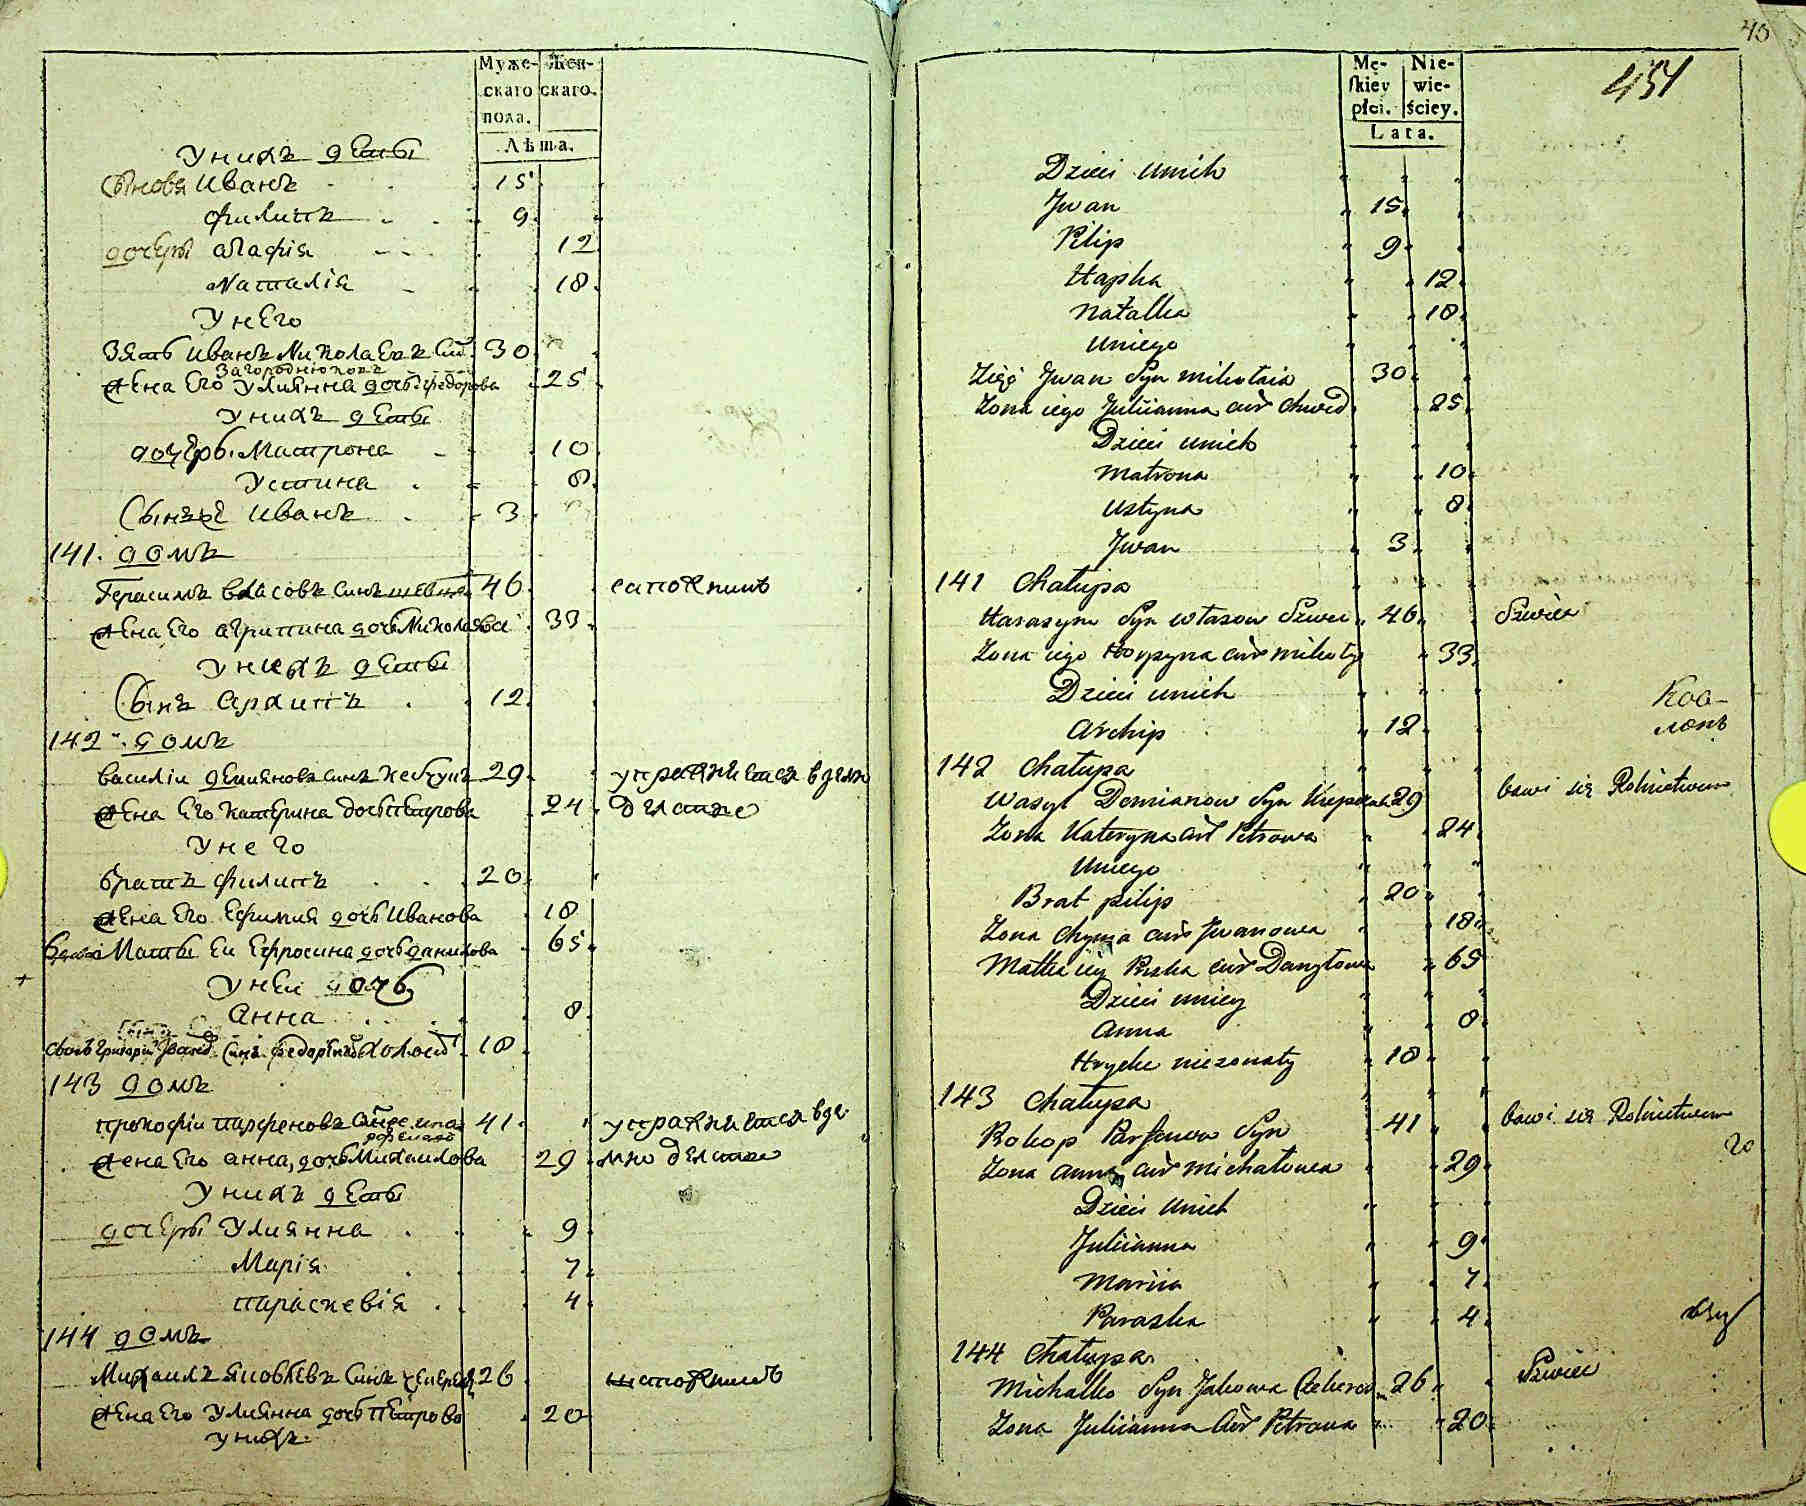 Муже-
скаго
пола.
Жен-
скаго.
Лѣта.
У нихъ дѣти
Сыновя Иванъ 15
Филипъ 9
дочери Агафія 12
Наталія 18
У него
Зять Иванъ Николаевъ Сынъ 30
Жена Его Улиянна дочь Федорова 25
У нихъ дети
дочерь Матрона 10
Устина 8
Сынъ Иванъ 3
141. домъ
Герасимъ Власовъ Синъ 46 сапожникъ
Жена Его Агрипина дочь Николаева 33
У нихъ дети
Сынъ Архипъ 12
142. домъ
Василіи Демияновъ Синъ 29 упражнѣется в земле
Жена Его Катерина дочь Петрова 24 делствѣ
У него
братъ Филипъ 20
Жена Его Ефимия дочь Иванова 18
вдова Мать Еи Ефросина дочь Данилова 65
У неи дочь
Анна 8
Григории 18
143 домъ
Прокофіи Парфеновъ 41 упражнѣется в зе
Жена Его Анна, дочь Михаилова 29 мле делствѣ
У нихъ дети
дочери Улиянна 9
Марія 7
Параскевія 4
144 домъ
Михаилъ Яковлевъ Синъ 26 сапожникъ
Жена Его Улиянна дочь Петрова 20
У нихъ
45
451
Mę-
skiey
płci.
Nie-
wie-
ściey.
Lata.
Dzieci unich
Jwan 15
Pilip 9
Hapka 12
Natalka 18
Uniego
Zięć Jwan Syn Mikołaia 30
Zona iego Juliianna cór Chwed 25
Dzieci unich
Matrona 10
Ustyna 8
Jwan 3
141 Chałupa
Harasym Syn Własow Szwec 46 Szwiec
Zona iego Horpyna cór Mikoły 33
Dzieci unich
Archip 12
142 Chałupa
Wasyl Demianow Syn 29 bawi się Rolnictwem
Zona Kateryna cór Petrowa 24
Uniego
Brat Pilip 20
Zona Chyma cór Jwanowa 18
Matka iey Pryska cór Danyłowa 65
Dzieci uniey
Anna 8
Hryćko niezonaty 18
143 Chałupa
Prokop Parfenow Syn 41 bawi się Rolnictwem
20
Zona Anna cór Michałowa 29
Dzieci unich
Juliianna 9
Mariia 7
Paraska 4
144 Chałupa
Michałko Syn Jakowa 26 Szwiec
Zona Juliianna Cór Petrowa 20